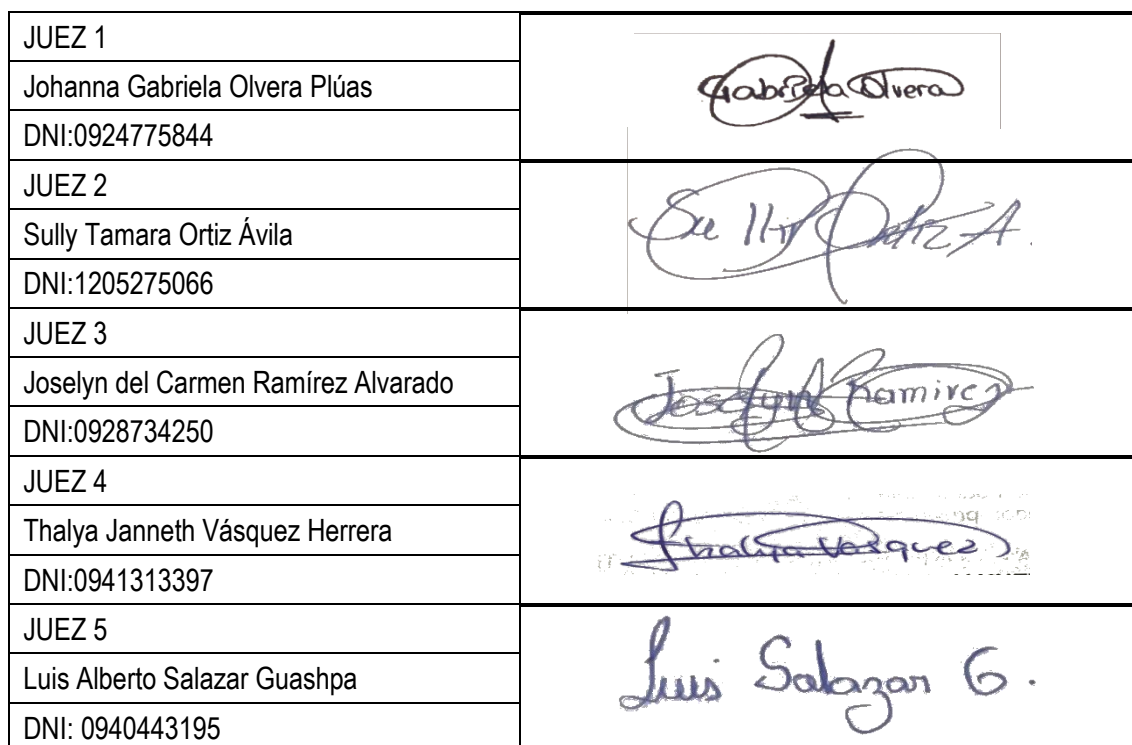 JUEZ 1
Johanna Gabriela Olvera Plúas
DNI:0924775844
Gabriela Olvera
JUEZ 2
Sully Tamara Ortiz Ávila
DNI:1205275066
Sully Ortiz A.
JUEZ 3
Joselyn del Carmen Ramírez Alvarado
DNI:0928734250
Joselyn Ramirez
JUEZ 4
Thalya Janneth Vásquez Herrera
DNI:0941313397
Thalya Vasquez
JUEZ 5
Luis Alberto Salazar Guashpa
DNI: 0940443195
Luis Salazar G.